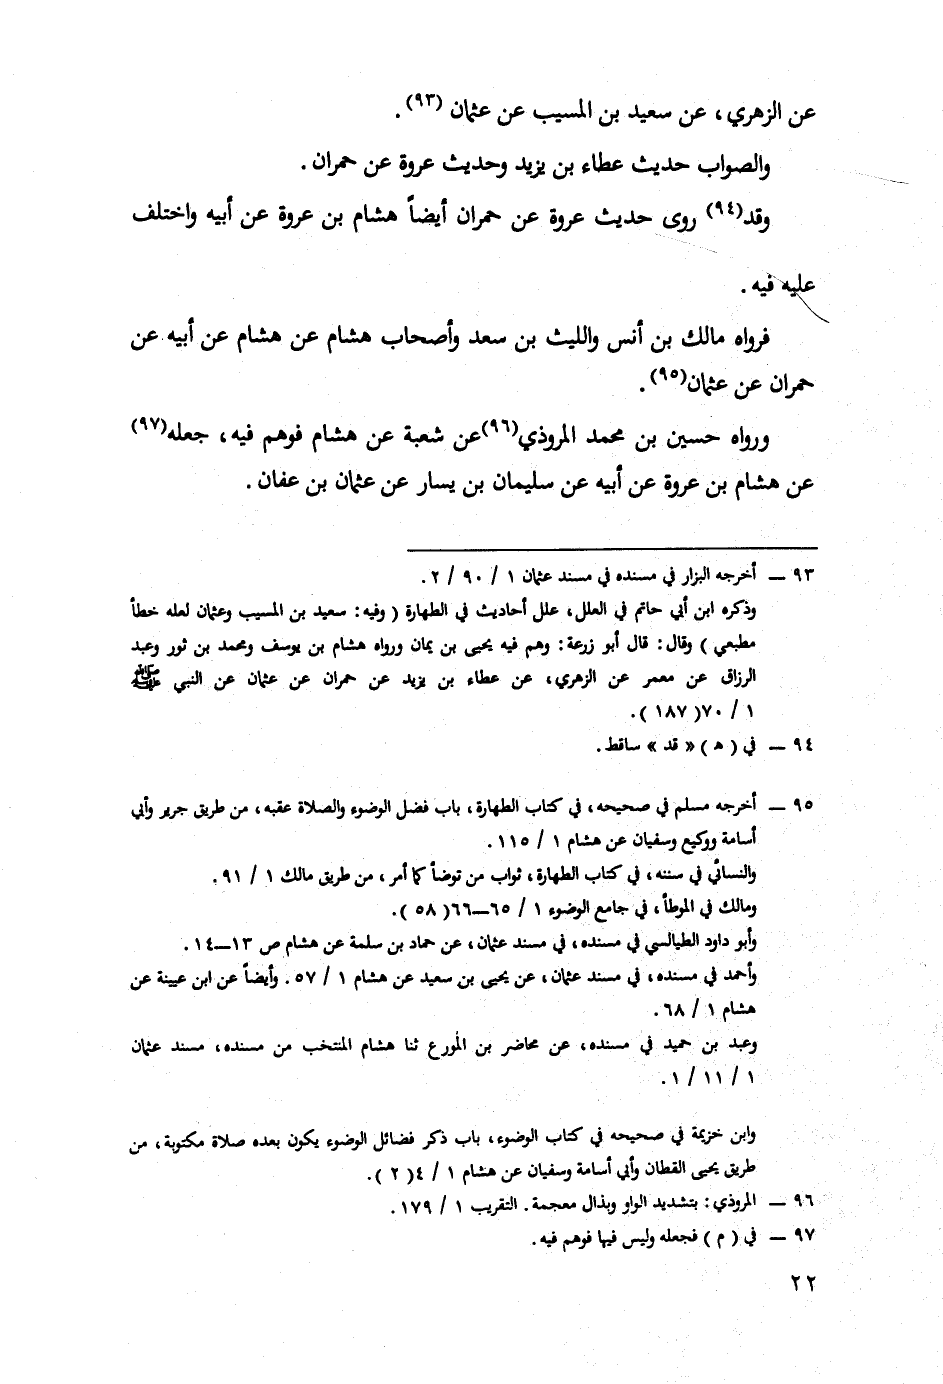 عن الزهري ، عن سعيد بن المسيب عن عثمان (٩٣) .
والصواب حديث عطاء بن يزيد وحديث عروة عن حمران .
وقد(٩٤) روى حديث عروة عن حمران أيضاً هشام بن عروة عن أبيه واختلف
عليه فيه .
فرواه مالك بن أنس والليث بن سعد وأصحاب هشام عن هشام عن أبيه عن
حمران عن عثمان(٩٥) .
ورواه حسين بن محمد المروذي(٩٦)عن شعبة عن هشام فوهم فيه ، جعله(٩٧)
عن هشام بن عروة عن أبيه عن سليمان بن يسار عن عثمان بن عفان .
٩٣ ــ أخرجه البزار في مسنده في مسند عثمان ١ / ٩٠ / ٢ .
وذكره ابن أبي حاتم في العلل ، علل أحاديث في الطهارة ( وفيه : سعيد بن المسيب وعثمان لعله خطأ
مطبعي ) وقال : قال أبو زرعة : وهم فيه يحيى بن يمان ورواه هشام بن يوسف ومحمد بن ثور وعبد
الرزاق عن معمر عن الزهري ، عن عطاء بن يزيد عن حمران عن عثمان عن النبي ﷺ
١ / ٧٠( ١٨٧ ) .
٩٤ ــ في ( هـ ) « قد » ساقط .
٩٥ ــ أخرجه مسلم في صحيحه ، في كتاب الطهارة ، باب فضل الوضوء والصلاة عقبه ، من طريق جرير وأبي
أسامة ووكيع وسفيان عن هشام ١ / ١١٥ .
والنسائي في سننه ، في كتاب الطهارة ، ثواب من توضأ كما أمر ، من طريق مالك ١ / ٩١ .
ومالك في الموطأ ، في جامع الوضوء ١ / ٦٥ــ٦٦( ٥٨ ) .
وأبو داود الطيالسي في مسنده ، في مسند عثمان ، عن حماد بن سلمة عن هشام ص ١٣ــ١٤ .
وأحمد في مسنده ، في مسند عثمان ، عن يحيى بن سعيد عن هشام ١ / ٥٧ . وأيضاً عن ابن عيينة عن
هشام ١ / ٦٨ .
وعبد بن حميد في مسنده ، عن محاضر بن المُورع ثنا هشام المنتخب من مسنده ، مسند عثمان
١ / ١١ / ١ .
وابن خزيمة في صحيحه في كتاب الوضوء ، باب ذكر فضائل الوضوء يكون بعده صلاة مكتوبة ، من
طريق يحيى القطان وأبي أسامة وسفيان عن هشام ١ / ٤( ٢ ) .
٩٦ ــ المروذي : بتشديد الواو وبذال معجمة . التقريب ١ / ١٧٩ .
٩٧ ــ في ( م ) فجعله وليس فيها فوهم فيه .
٢٢